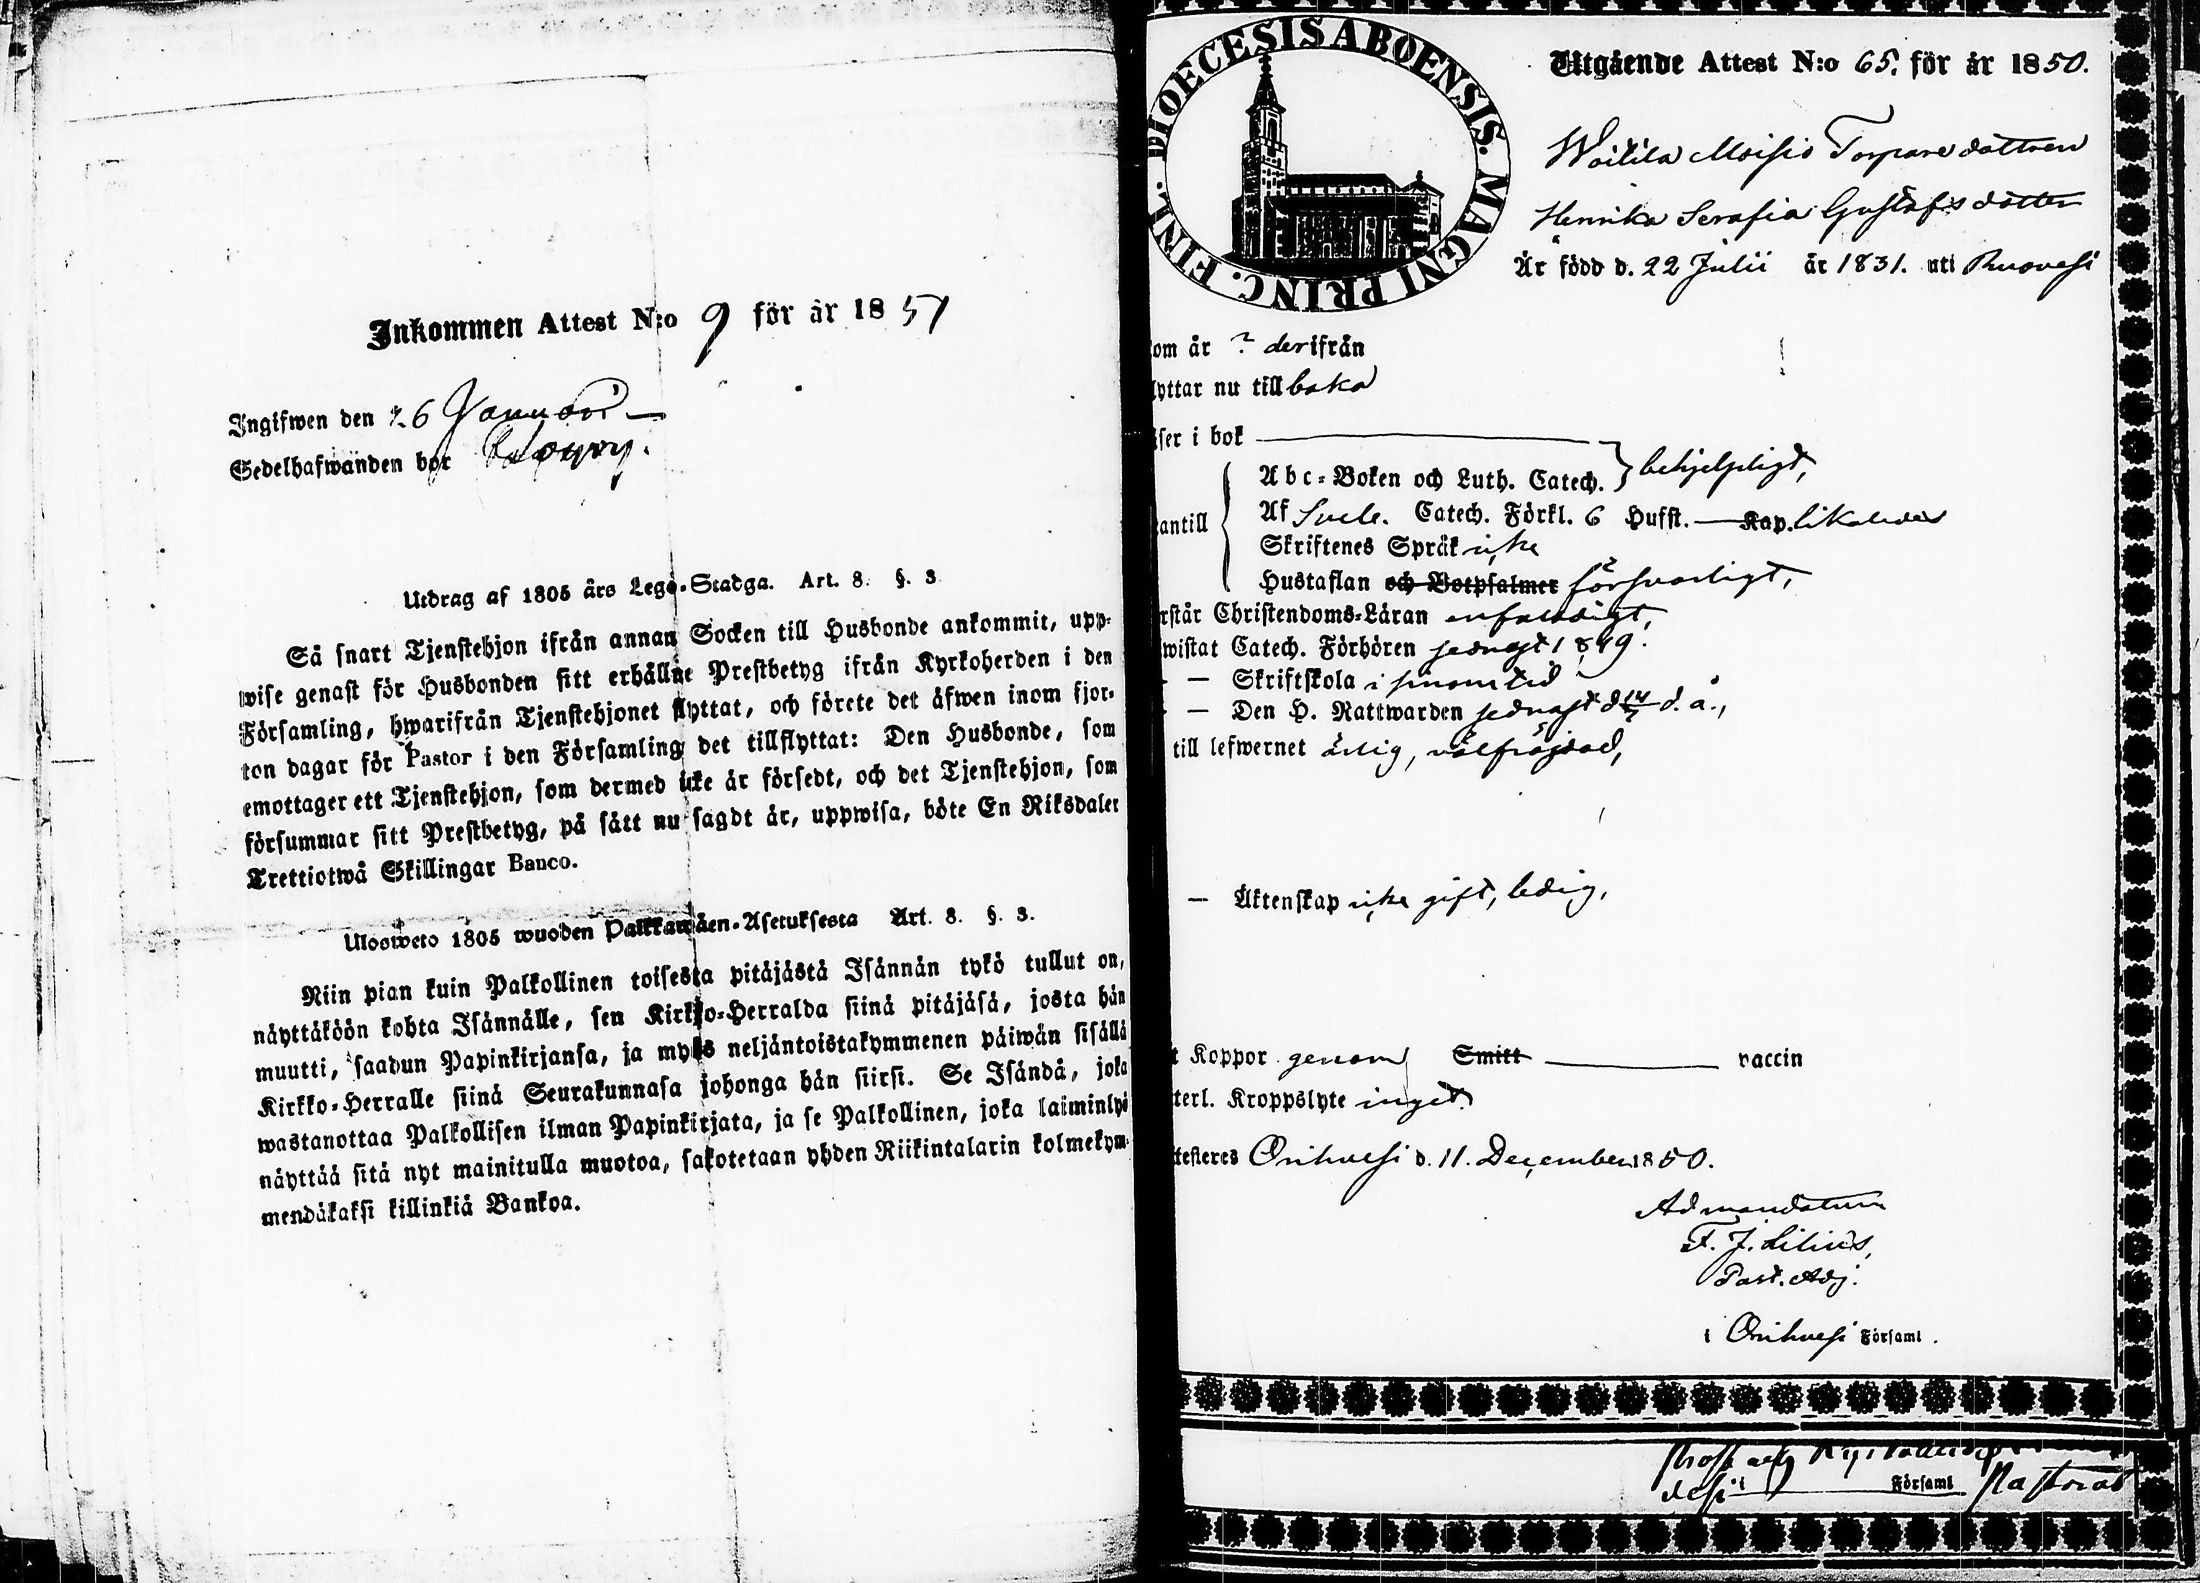 Inkommen Attest N:o 9 för år 1851
Ingifwen den 26 Januari
Sedelhafwanden bor
Utdrag af 1805 års Lego-Stadga. Art. 8. §. 3
Så snart Tjenstehjon ifrån annan Socken till Husbonde ankommit, upp-
wise genast för Husbonden sitt erhållne Prestbetyg ifrån Kyrkoherden i den
Församling, hwarifrån Tjenstehjonet flyttat, och förete det äfwen inom fjor-
ton dagar för Pastor i den Församling det tillflyttat: Den Husbonde, som
emottager ett Tjenstehjon, som dermed icke är försedt, och det Tjenstehjon, som
försummar sitt Prestbetyg, på sätt nu sagdt är, uppwisa, böte En Riksdaler
Trettiotwå Skillingar Banco.
Ulosweto 1805 wuoden Palkkawäen-Asetuksesta Art. 8. §. 3.
Niin pian kuin Palkollinen toisesta pitäjästä Isännän tykö tullut on,
näyttäköön kohta Isännälle, sen Kirkko-Herralda siinä pitäjäsä, josta hän
muutti, saadun Papinkirjansa, ja myös neljäntoistakymmenen päiwän sisällä
Kirkko-Herralle siinä Seurakunnasa johonga hän siirsi. Se Isändä, joka
wastanottaa Palkollisen ilman Papinkirjata, ja se Palkollinen, joka laiminlyö
näyttää sitä nyt mainitulla muotoa, sakotetaan yhden Riikintalarin kolmekym-
mendäkaksi killinkiä Bankoa.
DIOECESIS ABOENSIS. MAGNI PRINC. FINL.
Utgående Attest N:o 65. för år 1850.
Woitila Moisio Torpare dottren
Henrika Serafia Gustafsdotter
Är född d. 22 Julii år 1831. uti Ruovesi
om år ? derifrån
lyttar nu tillbaka
ser i bok
Abc-Boken och Luth. Catech. behjelpligt,
antill Af Sveb. Catech. Förkl. 6 Hufst. — Kap. likaledes
Skriftenes Språk icke
Hustaflan och Botpsalmer försvarligt,
rstår Christendoms-Läran enfaldigt,
wistat Catech. Förhören sednast 1849.
— Skriftskola i sinom tid
— Den H. Nattwarden sednast d 14/7 d. å.,
till lefwernet ärlig, välfräjdad,
— Äktenskap icke gift, ledig,
t Koppor genom Smitt — vaccin
terl. Kroppslyte inget.
testeres Orihvesi d. 11. December 1850.
Ad mandatum
F. J. Lilius,
Past. Adj.
i Orihvesi Församl.
Församl Pastorat